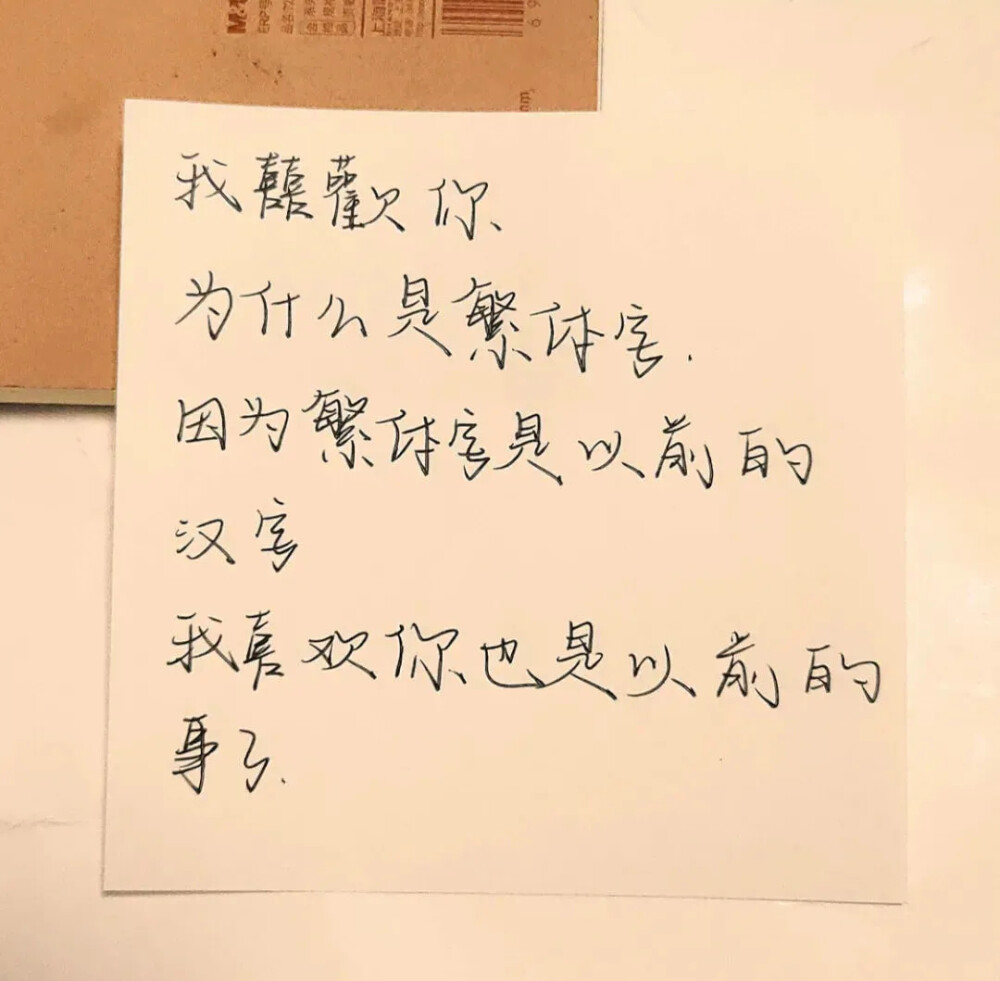 我囍歡你
为什么是繁体字.
因为繁体字是以前的
汉字
我喜欢你也是以前的
事了.